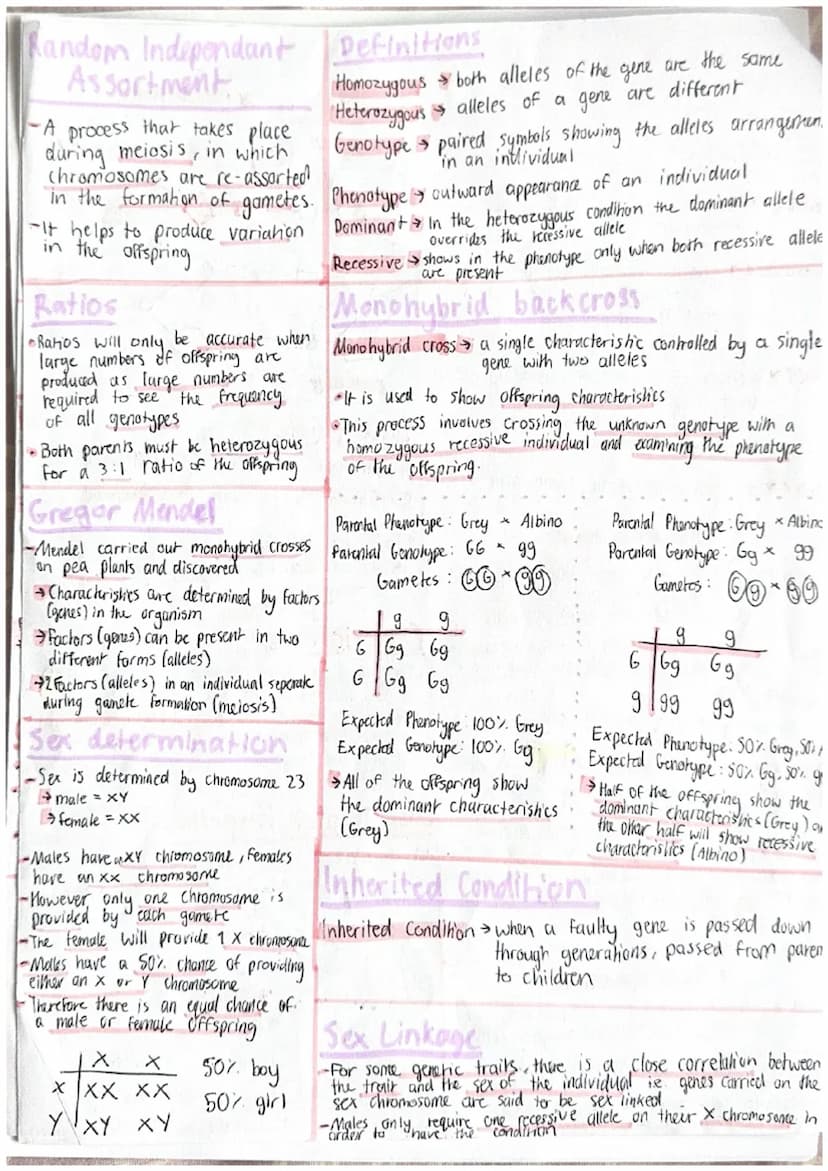 Random Independant
Assortment
-A process that takes place
during meiosis, in which
chromosomes are re-assorted
in the formation of gametes.
-It helps to produce variation
in the offspring
Ratios
•Ratios will only be accurate when
large numbers of offspring are
produced as large numbers are
required to see the frequency
of all genotypes
•Both parents must be heterozygous
for a 3:1 ratio of the offspring
Gregor Mendel
-Mendel carried out monohybrid crosses
on pea plants and discovered
→Characteristics are determined by factors
(genes) in the organism
→Factors (genes) can be present in two
different forms (alleles)
→2 Factors (alleles) in an individual separate
during gamete formation (meiosis)
Sex determination
-Sex is determined by chromosome 23
→male = XY
→female = XX
-Males have XY chromosome, females
have an XX chromosome
-However only one chromosome is
provided by each gamete
-The female will provide 1 X chromosome
-Males have a 50% chance of providing
either an X or Y chromosome
-Therefore there is an equal chance of
a male or female offspring
X X
X XX XX
Y XY XY
50% boy
50% girl
Definitions
Homozygous → both alleles of the gene are the same
Heterozygous → alleles of a gene are different
Genotype → paired symbols showing the alleles arrangemen
in an individual
Phenotype → outward appearance of an individual
Dominant → In the heterozygous condition the dominant allele
overrides the recessive allele
Recessive → shows in the phenotype only when both recessive allele
are present
Monohybrid backcross
Monohybrid cross → a single characteristic controlled by a single
gene with two alleles
•It is used to show offspring characteristics
•This process involves crossing the unknown genotype with a
homozygous recessive individual and examining the phenotype
of the offspring.
Parental Phenotype: Grey × Albino
Parental Genotype: GG × gg
Gametes: G G × g g
g g
G Gg Gg
G Gg Gg
Expected Phenotype: 100% Grey
Expected Genotype: 100% Gg
→All of the offspring show
the dominant characteristics
(Grey)
Parental Phenotype: Grey × Albino
Parental Genotype: Gg × gg
Gametes: G g × g g
g g
G Gg Gg
g gg gg
Expected Phenotype: 50% Grey, 50%
Expected Genotype: 50% Gg, 50% g
→Half of the offspring show the
dominant characteristics (Grey)
the other half will show recessive
characteristics (Albino)
Inherited Condition
Inherited Condition → when a faulty gene is passed down
through generations, passed from paren
to children
Sex Linkage
-For some genetic traits, there is a close correlation between
the trait and the sex of the individual ie. genes carried on the
sex chromosome are said to be sex linked
-Males only require one recessive allele on their X chromosome in
order to have the condition